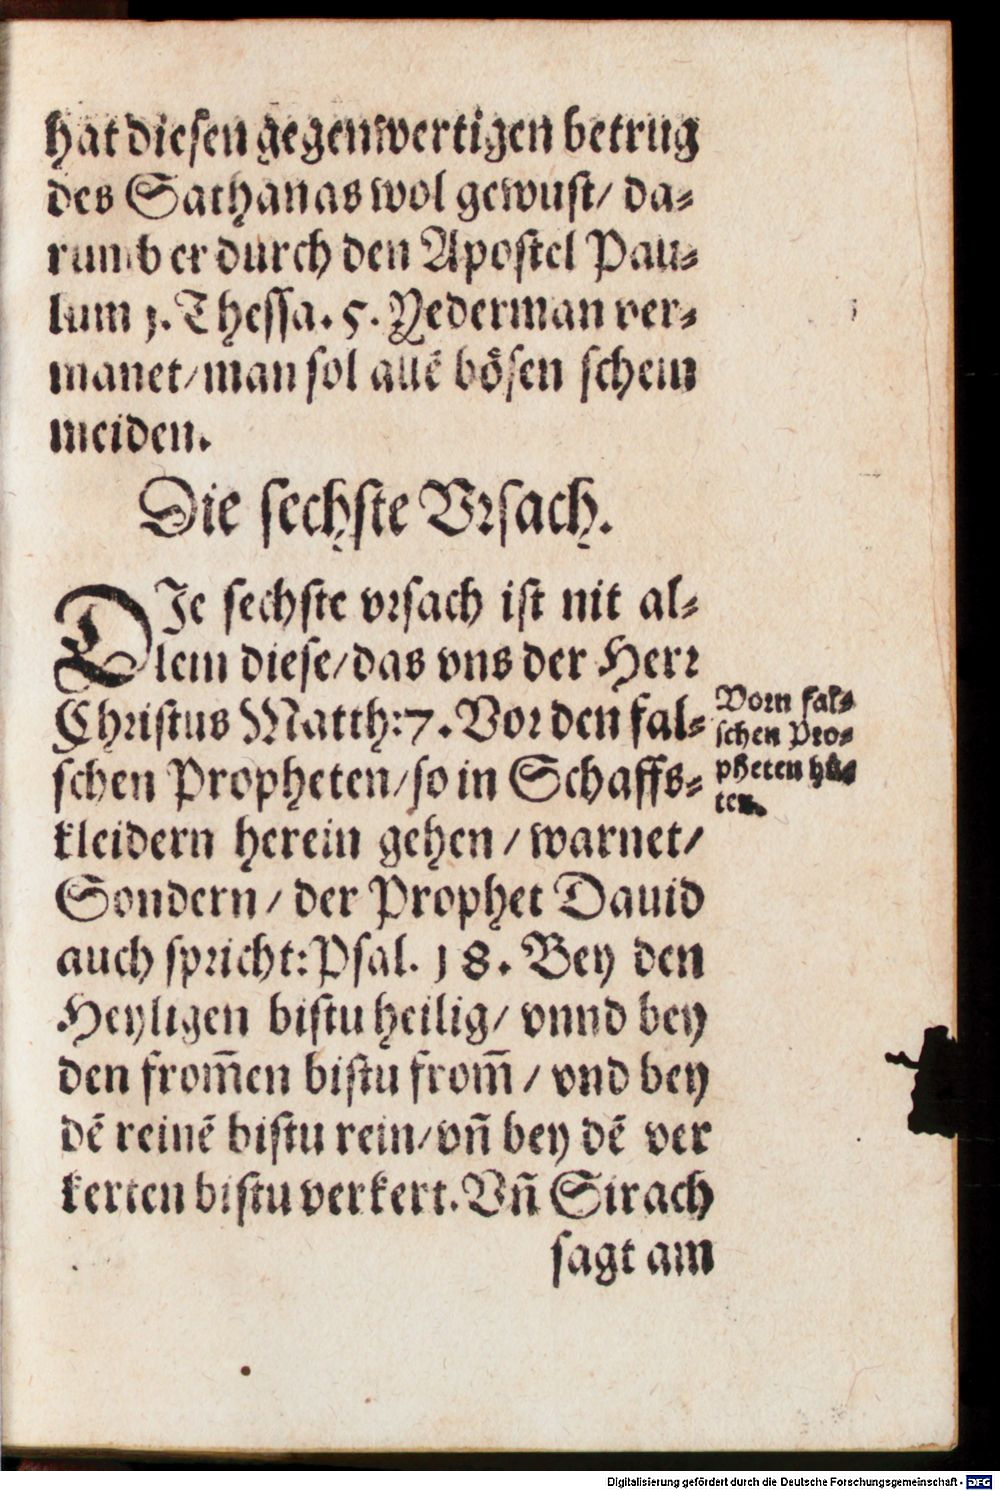 hat diesen gegenwertigen betrug
des Sathanas wol gewust/ da-
rumb er durch den Apostel Pau-
lum 1. Thessa. 5. Yederman ver-
manet/ man sol allē bösen schein
meiden.
Die sechste Vrsach.
DIe sechste vrsach ist nit al-
lein diese/ das vns der Herr
Christus Matth: 7. Vor den fal-
schen Propheten/ so in Schaffs-
kleidern herein gehen / warnet/
Sondern / der Prophet Dauid
auch spricht: Psal. 18. Bey den
Heyligen bistu heilig/ vnnd bey
den from̃en bistu from̃ / vnd bey
dē reinē bistu rein/ vñ bey dē ver
kerten bistu verkert. Vñ Sirach
sagt am
Vorn fal-
schen Pro-
pheten hü-
ten.
Digitalisierung gefördert durch die Deutsche Forschungsgemeinschaft - DFG